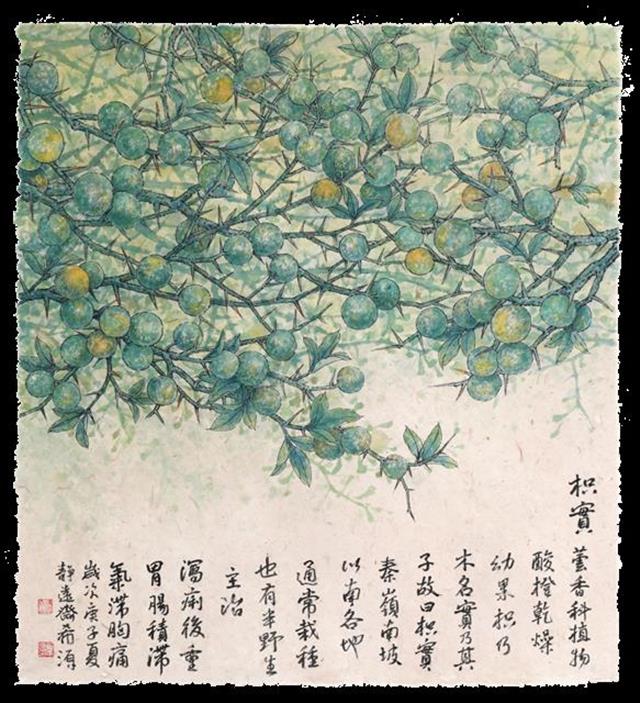 枳實 蕓香科植物
酸橙乾燥
幼果枳乃
木名實乃其
子故曰枳實
秦嶺南坡
以南各地
通常栽種
也有半野生
主治
瀉痢後重
胃腸積滯
氣滯胸痛
歲次庚子夏
靜遠齋希